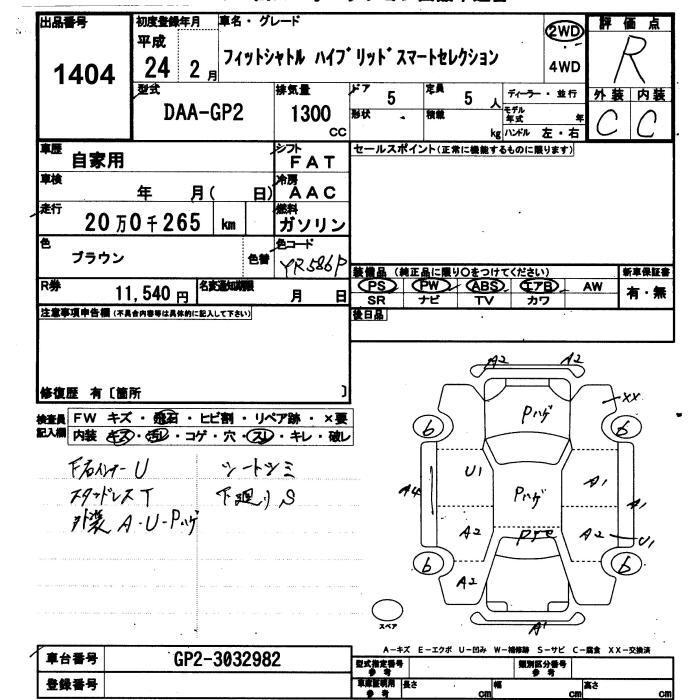 出品番号
1404
初度登録年月
平成
24 2月
車名・グレード
フィットシャトル ハイブリッド スマートセレクション
2WD
4WD
評価点
R
外装 内装
C C
型式
DAA-GP2
排気量
1300
CC
ドア
5
形状
定員
5 人
積載
kg
ディーラー・並行
モデル年式 年
ハンドル 左・右
車歴
自家用
シフト
FAT
車検
年 月( 日)
冷房
AAC
走行
20万0千265 km
燃料
ガソリン
色
ブラウン
色替
色コード
YR586P
R券
11,540円
名変通知期限
月 日
セールスポイント(正常に機能するものに限ります)
装備品 (純正品に限り○をつけてください)
PS PW ABS エアB AW
SR ナビ TV カワ
新車保証書
有・無
後日品
注意事項申告欄(不具合内容等は具体的に記入して下さい)
修復歴 有〔箇所 〕
検査員記入欄
FW キズ・飛石・ヒビ割・リペア跡・×要
内装 キズ・汚レ・コゲ・穴・スレ・キレ・破レ
F右インナーU
スタッドレスT
外装 A・U・Pハゲ
シートシミ
下廻りS
A2 A2
XX
Pハゲ
6 6
U1
A1
A4
Pハゲ
A1
A2
A2
U1
6 6
A2
A1
スペア
A-キズ E-エクボ U-凹み W-補修跡 S-サビ C-腐食 XX-交換済
車台番号
GP2-3032982
登録番号
型式指定番号
参考
類別区分番号
参考
車庫証明用
参考
長さ cm
幅 cm
高さ cm